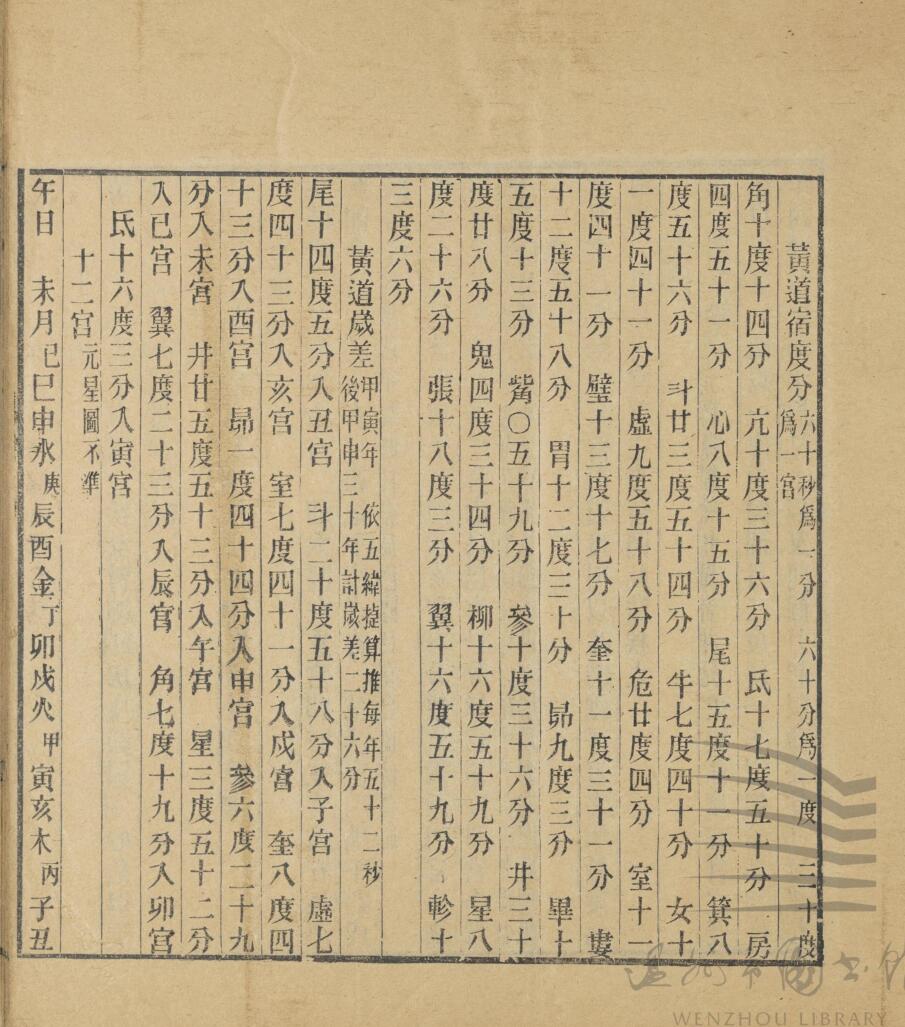 黃道宿度分六十秒爲一分　六十分爲一度　三十度爲一宮
角十度十四分　亢十度三十六分　氐十七度五十分　房
四度五十一分　心八度十五分　尾十五度十一分　箕八
度五十六分　斗廿三度五十四分　牛七度四十分　女十
一度四十一分　虛九度五十八分　危廿度四分　室十一
度四十一分　璧十三度十七分　奎十一度三十一分　婁
十二度五十八分　胃十二度三十分　昴九度三分　畢十
五度十三分　觜〇五十九分　參十度三十六分　井三十
度廿八分　鬼四度三十四分　柳十六度五十九分　星八
度二十六分　張十八度三分　翼十六度五十九分　軫十
三度六分
黃道歲差甲寅年　依五緯捷算推每年五十二秒後甲申三十年計歲差二十六分
尾十四度五分入丑宮　斗二十度五十八分入子宮　虛七
度四十三分入亥宮　室七度四十一分入戌宮　奎八度四
十三分入酉宮　昴一度四十四分入申宮　參六度二十九
分入未宮　井廿五度五十三分入午宮　星三度五十二分
入巳宮　翼七度二十三分入辰宮　角七度十九分入卯宮
氐十六度三分入寅宮
十二宮元星圖不準
午日　未月己巳申水庚辰酉金丁卯戌火甲寅亥木丙子丑
WENZHOU LIBRARY